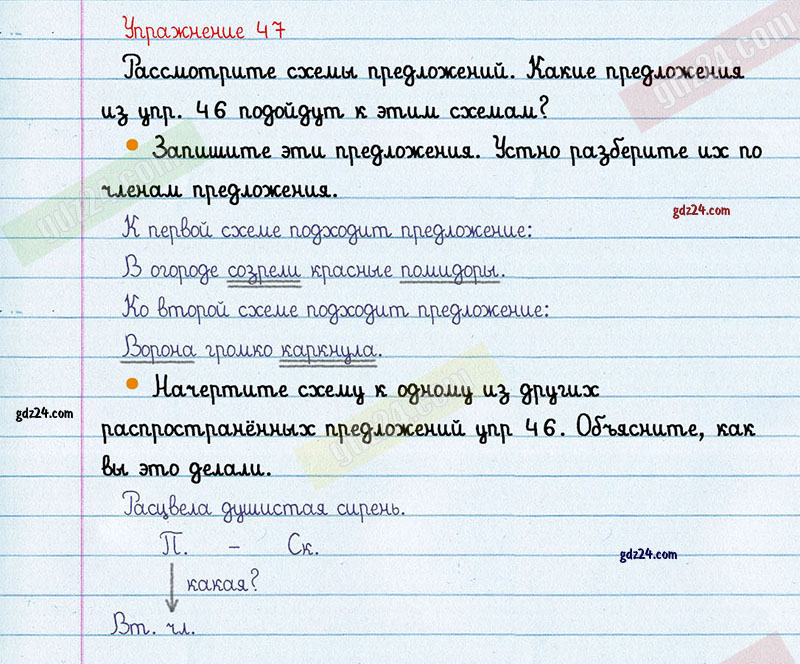 gdz24.com
Упражнение 47
Рассмотрите схемы предложений. Какие предложения
из упр. 46 подойдут к этим схемам?
• Запишите эти предложения. Устно разберите их по
членам предложения.
gdz24.com
gdz24.com
К первой схеме подходит предложение:
В огороде созрели красные помидоры.
Ко второй схеме подходит предложение:
Ворона громко каркнула.
• Начертите схему к одному из других
gdz24.com
распространённых предложений упр 46. Объясните, как
gdz24.com
вы это делали.
Расцвела душистая сирень.
П. – Ск.
gdz24.com
какая?
Вт. чл.